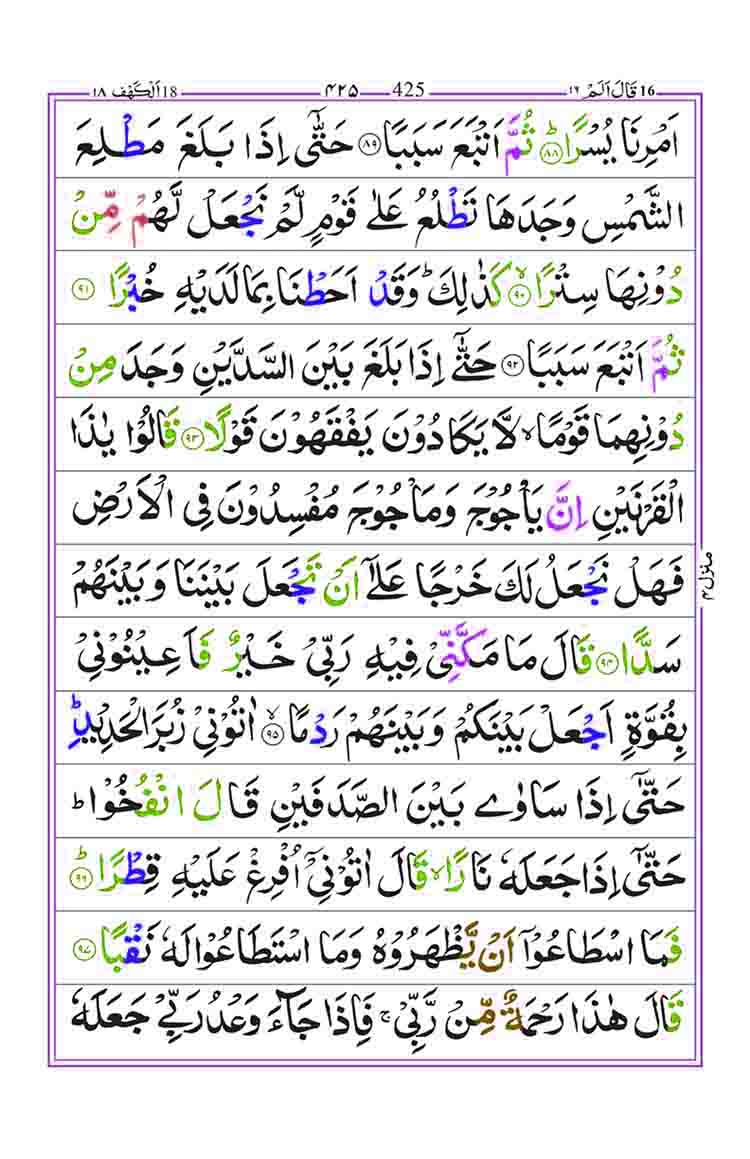 16 قَالَ اَلَمْ ١٦ 425 ۴۲۵ 18 اَلْكَهْف ١٨
اَمْرِنَا يُسْرًاؕ‏﴿۸۸﴾ ثُمَّ اَتْبَعَ سَبَبًا‏﴿۸۹﴾ حَتّٰٓى اِذَا بَلَغَ مَطْلِعَ
الشَّمْسِ وَجَدَهَا تَطْلُعُ عَلٰى قَوْمٍ لَّمْ نَجْعَلْ لَّهُمْ مِّنْ
دُوْنِهَا سِتْرًا‏﴿۹۰﴾ كَذٰلِكَؕ وَقَدْ اَحَطْنَا بِمَا لَدَيْهِ خُبْرًا‏﴿۹۱﴾
ثُمَّ اَتْبَعَ سَبَبًا‏﴿۹۲﴾ حَتّٰٓى اِذَا بَلَغَ بَيْنَ السَّدَّيْنِ وَجَدَ مِنْ
دُوْنِهِمَا قَوْمًاۙ لَّا يَكَادُوْنَ يَفْقَهُوْنَ قَوْلًا‏﴿۹۳﴾ قَالُوْا يٰذَا
الْقَرْنَيْنِ اِنَّ يَاْجُوْجَ وَمَاْجُوْجَ مُفْسِدُوْنَ فِى الْاَرْضِ
فَهَلْ نَجْعَلُ لَكَ خَرْجًا عَلٰٓى اَنْ تَجْعَلَ بَيْنَنَا وَبَيْنَهُمْ
سَدًّا‏﴿۹۴﴾ قَالَ مَا مَكَّنِّىْ فِيْهِ رَبِّىْ خَيْرٌ فَاَعِيْنُوْنِىْ
بِقُوَّةٍ اَجْعَلْ بَيْنَكُمْ وَبَيْنَهُمْ رَدْمًاۙ‏﴿۹۵﴾ اٰتُوْنِىْ زُبَرَ الْحَدِيْدِؕ
حَتّٰٓى اِذَا سَاوٰى بَيْنَ الصَّدَفَيْنِ قَالَ انْفُخُوْاؕ
حَتّٰٓى اِذَا جَعَلَهٗ نَارًاۙ قَالَ اٰتُوْنِىْۤ اُفْرِغْ عَلَيْهِ قِطْرًاؕ‏﴿۹۶﴾
فَمَا اسْطَاعُوْۤا اَنْ يَّظْهَرُوْهُ وَمَا اسْتَطَاعُوْا لَهٗ نَقْبًا‏﴿۹۷﴾
قَالَ هٰذَا رَحْمَةٌ مِّنْ رَّبِّىْۚ فَاِذَا جَآءَ وَعْدُ رَبِّىْ جَعَلَهٗ
منزل ۴